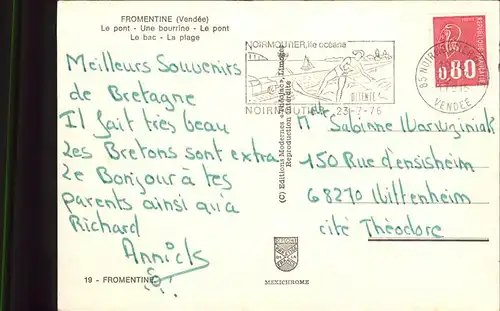 FROMENTINE (Vendée)
Le pont - Une bourrine - Le pont
Le bac - La plage
Meilleurs Souvenirs
de Bretagne
Il fait très beau
Les Bretons sont extra
Le Bonjour à tes
parents ainsi qu'a
Richard
Annick
19 - FROMENTINE
(C) Editions Modernes
Reproduction interdite
MEXICHROME
NOIRMOUTIER, île océane
DETENTE
NOIRMOUTIER
23-7-76
85 NOIRMOUTIER
VENDEE
REPUBLIQUE FRANCAISE
0,80
Melle Sabinne Warwziniak
150 Rue d'ensisheim
68270 Wittenheim
cité Théodore